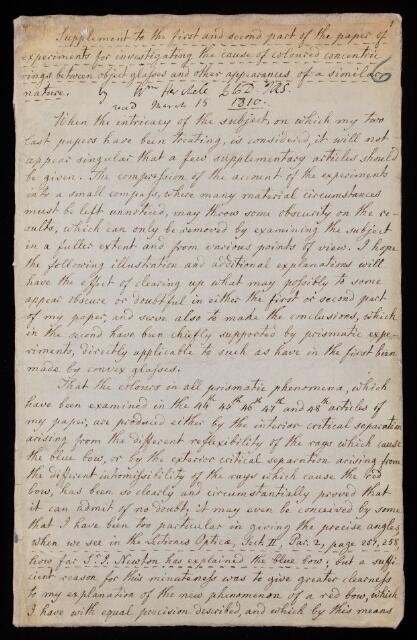 1
6
Supplement to the first and second part of the paper of
experiments for investigating the cause of coloured concentric
rings between object glasses and other appearances of a similar
nature. by Wm Herschel LLD. FRS.
read March 15 1810.
When the intricacy of the subject, on which my two
last papers have been treating, is considered, it will not
appear singular that a few supplementary articles should
be given. The compression of the account of the experiments
into a small compass, where many material circumstances
must be left unnoticed, may throw some obscurity on the re-
sults, which can only be removed by examining the subject
in a fuller extent and from various points of view. I hope
the following illustration and additional explanations will
have the effect of clearing up what may possibly to some
appear obscure or doubtful in either the first or second part
of my paper, and serve also to make the conclusions, which
in the second have been chiefly supported by prismatic expe-
riments, directly applicable to such as have in the first been
made by convex glasses.
That the colours in all prismatic phenomena, which
have been examined in the 44th 45th 46th 47th and 48th articles of
my paper, are produced either by the interior critical separation
arising from the different reflexibility of the rays which cause
the blue bow, or by the exterior critical separation arising from
the different intromissibility of the rays which cause the red
bow, has been so clearly and circumstantially proved that
it can admit of no doubt; it may even be conceived by some
that I have been too particular in giving the precise angles
when we see in the Lectiones Opticæ, Sect. II. Par. 2, page 257, 258,
how far Sr. I. Newton has explained the blue bow; but a suffi-
cient reason for this minuteness was to give greater clearness
to my explanation of the new phenomenon of a red bow, which
I have with equal precision described, and which by this means